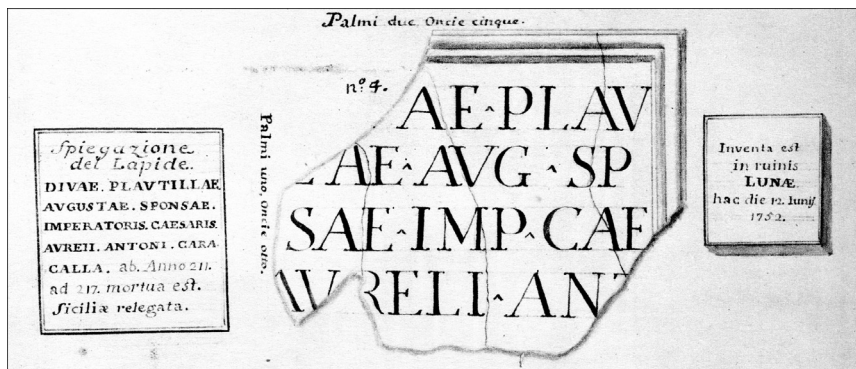 Palmi due Oncie cinque.
nº. 4.
Palmi uno, oncie otto.
Spiegazione
del Lapide.
DIVAE. PLAVTILLAE
AVGUSTAE. SPONSAE.
IMPERATORIS. CAESARIS.
AVRELI. ANTONI. CARA-
CALLA. ab. Anno 211.
ad 217. mortua est.
Siciliæ relegata.
AE^PLAV
LAE^AVG^SP
SAE^IMP^CAE
AVRELI^ANT
Inventa est
in ruinis
LUNÆ.
hac die 12. Iunij.
1752.